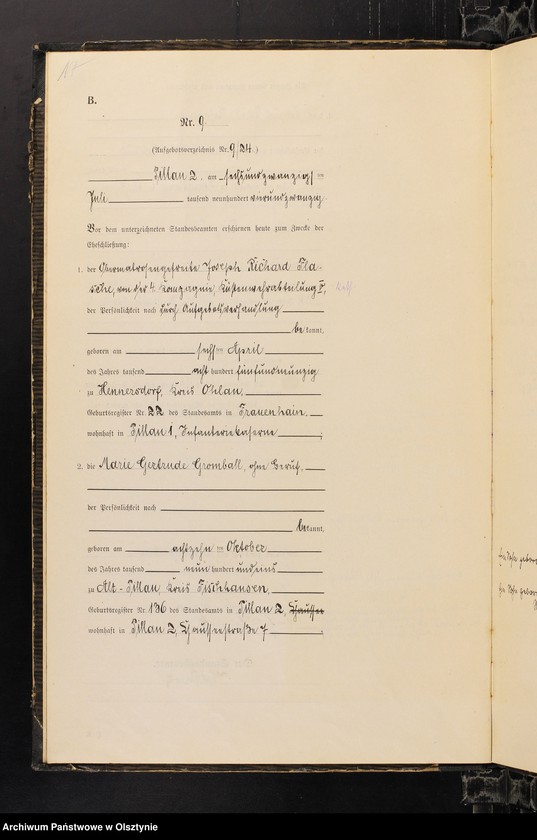 17
B.
Nr. 9.
(Aufgebotsverzeichnis Nr. 9, 24.)
Pillau 2, am sechsundzwanzigsten
Juli tausend neunhundert vierundzwanzig.
Vor dem unterzeichneten Standesbeamten erschienen heute zum Zwecke der
Eheschließung:
1. der Obermatrosengefreite Joseph Richard Fla-
schke, von der 4. Kompagnie, Küstenwehrabteilung I,
der Persönlichkeit nach durch Aufgebotsverhandlung
be kannt,
geboren am sechsten April
des Jahres tausend acht hundert fünfundneunzig
zu Hennersdorf, Kreis Ohlau,
Geburtsregister Nr. 22 des Standesamts in Frauenhain.
wohnhaft in Pillau 1, Infanteriekaserne ;
2. die Marie Gertrude Gromball, ohne Beruf,
der Persönlichkeit nach
be kannt,
geboren am achtzehnten Oktober
des Jahres tausend neun hundert und eins
zu Alt-Pillau, Kreis Fischhausen,
Geburtsregister Nr. 136 des Standesamts in Pillau 2, Chaussee
wohnhaft in Pillau 2, Chausseestraße 7 .
Archiwum Państwowe w Olsztynie